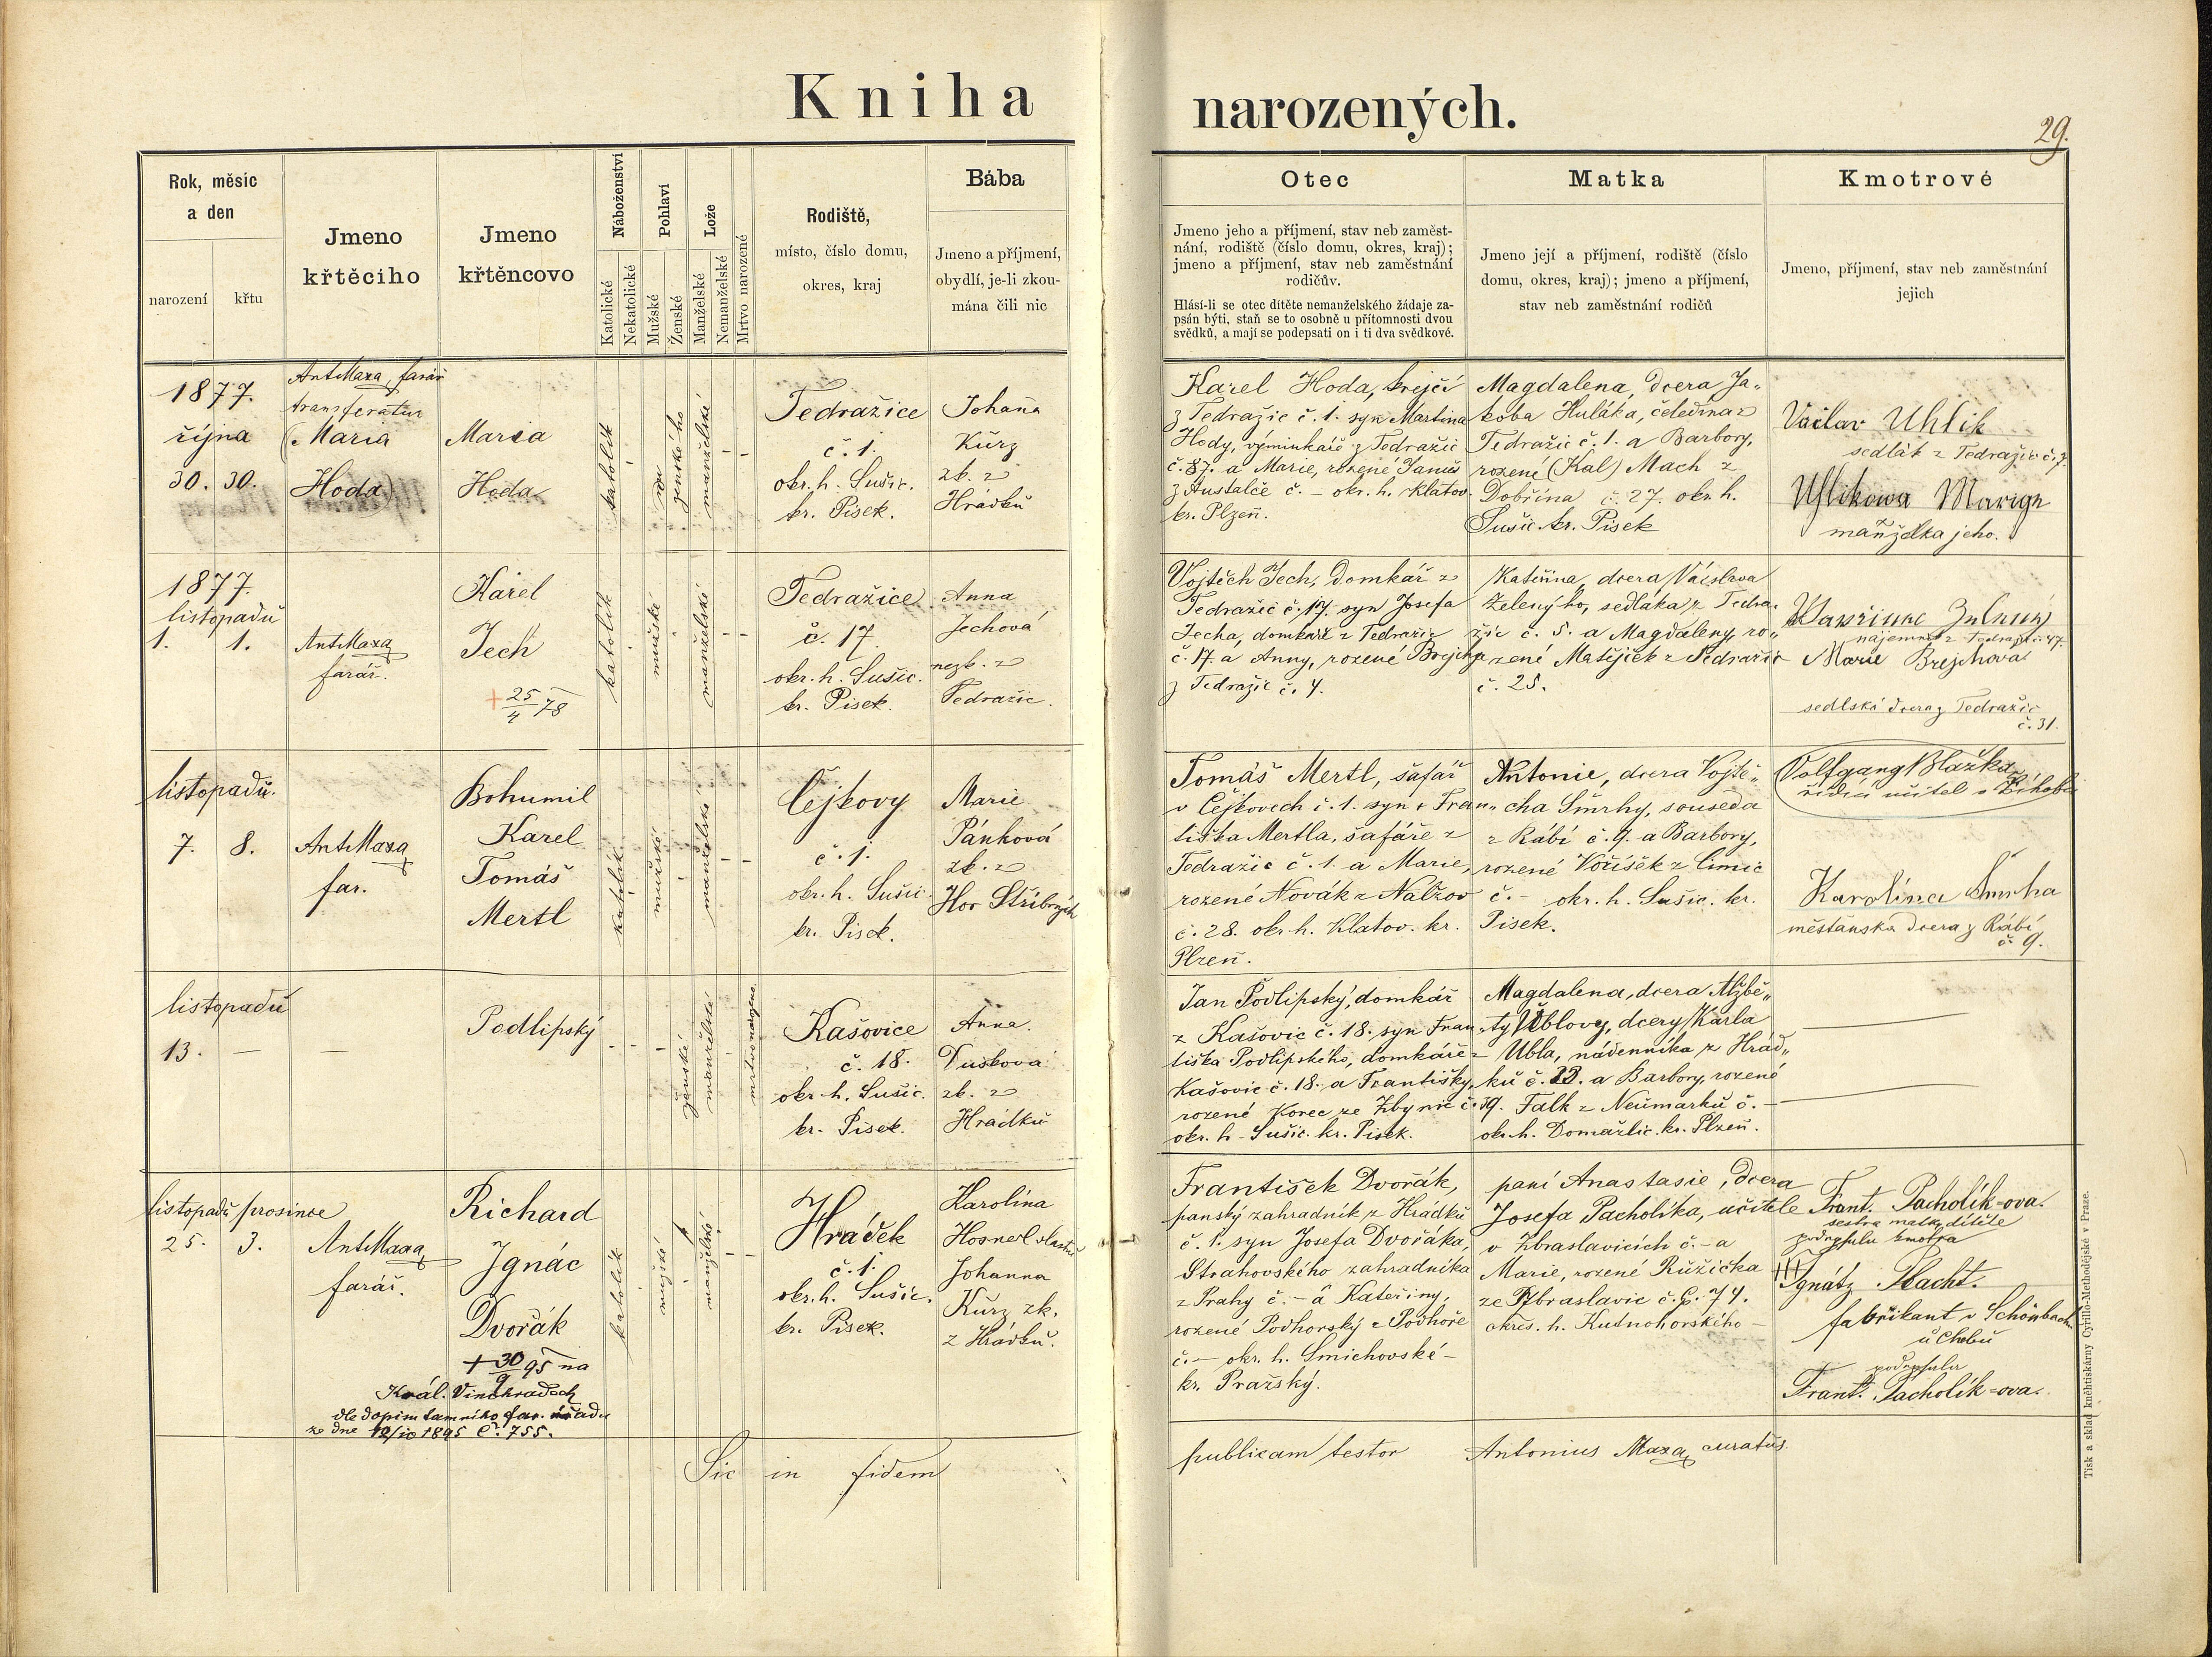 Kniha narozených.
29.
Rok, měsíc
a den
narození
křtu
Jmeno
křtěcího
Jmeno
křtěncovo
Náboženství
Katolické
Nekatolické
Pohlaví
Mužské
Ženské
Lože
Manželské
Nemanželské
Mrtvo narozené
Rodiště,
místo, číslo domu,
okres, kraj
Bába
Jmeno a příjmení,
obydlí, je-li zkou-
mána čili nic
Otec
Jmeno jeho a příjmení, stav neb zaměst-
nání, rodiště (číslo domu, okres, kraj);
jmeno a příjmení, stav neb zaměstnání
rodičův.
Hlásí-li se otec dítěte nemanželského žádaje za-
psán býti, staň se to osobně u přítomnosti dvou
svědků, a mají se podepsati on i ti dva svědkové.
Matka
Jmeno její a příjmení, rodiště (číslo
domu, okres, kraj); jmeno a příjmení,
stav neb zaměstnání rodičů
Kmotrové
Jmeno, příjmení, stav neb zaměstnání
jejich
1877.
října
30. 30.
Ant Maxa, farář
transferatur
(Maria
Hoda)
Maria
Hoda
katolík
ženského
manželské
Tedražice
č. 1.
okr. h. Sušic.
kr. Pisek.
Johana
Kürz
zk. z
Hrádku
Karel Hoda, krejčí
z Tedražic č. 1. syn Martina
Hody, výminkáře z Tedražic
č. 87. a Marie, rozené Janus
z Austalče č. – okr. h. Klatov.
kr. Plzeň.
Magdalena, dcera Ja-
koba Huláka, čeledína z
Tedražic č. 1. a Barbory,
rozené (Kal) Mach z
Dobřína č. 27. okr. h.
Sušic. kr. Pisek
Vaclav Uhlik
sedlák z Tedražic č. 7.
Uhlikowa Marige
manželka jeho.
1877.
listopadu
1. 1.
Ant Maxa
farář.
Karel
Jech
+ 25/4 78
katolík
mužské
manželské
Tedražice
č. 17.
okr. h. Sušic.
kr. Pisek.
Anna
Jechová
nezk. z
Tedražic.
Vojtěch Jech, domkář z
Tedražic č. 17. syn Josefa
Jecha, domkáře z Tedražic
č. 17. a Anny, rozené Brejcha
z Tedražic č. 4.
Kateřina, dcera Václava
Zeleného, sedláka z Tedra-
žic č. 5. a Magdaleny, ro-
zené Matějíček z Tedražic
č. 25.
nájemník z Tedražic č. 47.
Marie Brejchova
sedlská dcera z Tedražic
č. 31.
listopadu.
7. 8.
Ant Maxa
far.
Bohumil
Karel
Tomáš
Mertl
katolík
mužské
manželské
Čejkovy
č. 1.
okr. h. Sušic.
kr. Pisek.
Marie
Pánková
zk. z
Hor Stříbrných
Tomáš Mertl, šafář
v Čejkovech č. 1. syn + Fran-
tiška Mertla, šafáře z
Tedražic č. 1. a Marie,
rozené Novák z Nalžov
č. 28. okr. h. Klatov. kr.
Plzeň.
Antonie, dcera Vojtě-
cha Smrhy, souseda
z Rábí č. 9. a Barbory,
rozené Voříšek z Čimic
č. – okr. h. Sušic. kr.
Pisek.
Volfgang Blažka,
řídící učitel v
Karolina Smrha
měšťanská dcera z Rábí
č. 9.
listopadu
13. – –
Podlipský
ženské
manželské
mrtvo narozeno.
Kašovice
č. 18.
okr. h. Sušic.
kr. Pisek.
Anna
Dušková
zk. z
Hrádku
Jan Podlipský, domkář
z Kašovic č. 18. syn Fran-
tiška Podlipského, domkáře z
Kašovic č. 18. a Františky,
rozené Korec ze Zbynic č. 39.
okr. h. Sušic. kr. Pisek.
Magdalena, dcera Alžbě-
ty Ublovy, dcery Karla
Ubla, nádenníka z Hrád-
ku č. 23. a Barbory, rozené
Falk z Neumarku č. –
okr. h. Domažlic. kr. Plzeň.
listopadu prosince
25. 3.
Ant Maxa
farář.
Richard
Ignác
Dvořák
+ 30/9 95 na
Král. Vinohradech
dle dopisu tamního far. úřadu
ze dne 12/10 1895 č. 755.
katolík
mužské
manželské
Hrádek
č. 1.
okr. h. Sušic.
kr. Pisek.
Karolina
Hosnerl vlastně
Johanna
Kürz zk.
z Hrádku.
František Dvořák,
panský zahradník z Hrádku
č. 1. syn Josefa Dvořáka,
Strahovského zahradníka
z Prahy č. – a Kateřiny,
rozené Podhorský z Podhoře
č. – okr. h. Smichovské –
kr. Pražský.
paní Anastasie, dcera
Josefa Pacholíka, učitele
v Zbraslavicích č. – a
Marie, rozené Růžička
ze Zbraslavic č. p. 74.
okres. h. Kutnohorského –
Frant. Pacholík-ova.
sestra matky dítěte
podepsala kmotra
+++ Ignátz Placht.
fabrikant v Schönbachu
u Chebu
podepsala
Frant. Pacholík-ova.
Sic in fidem publicam testor Antonius Maxa curatus.
Tisk a sklad knihtiskárny Cyrillo-Methodějské v Praze.